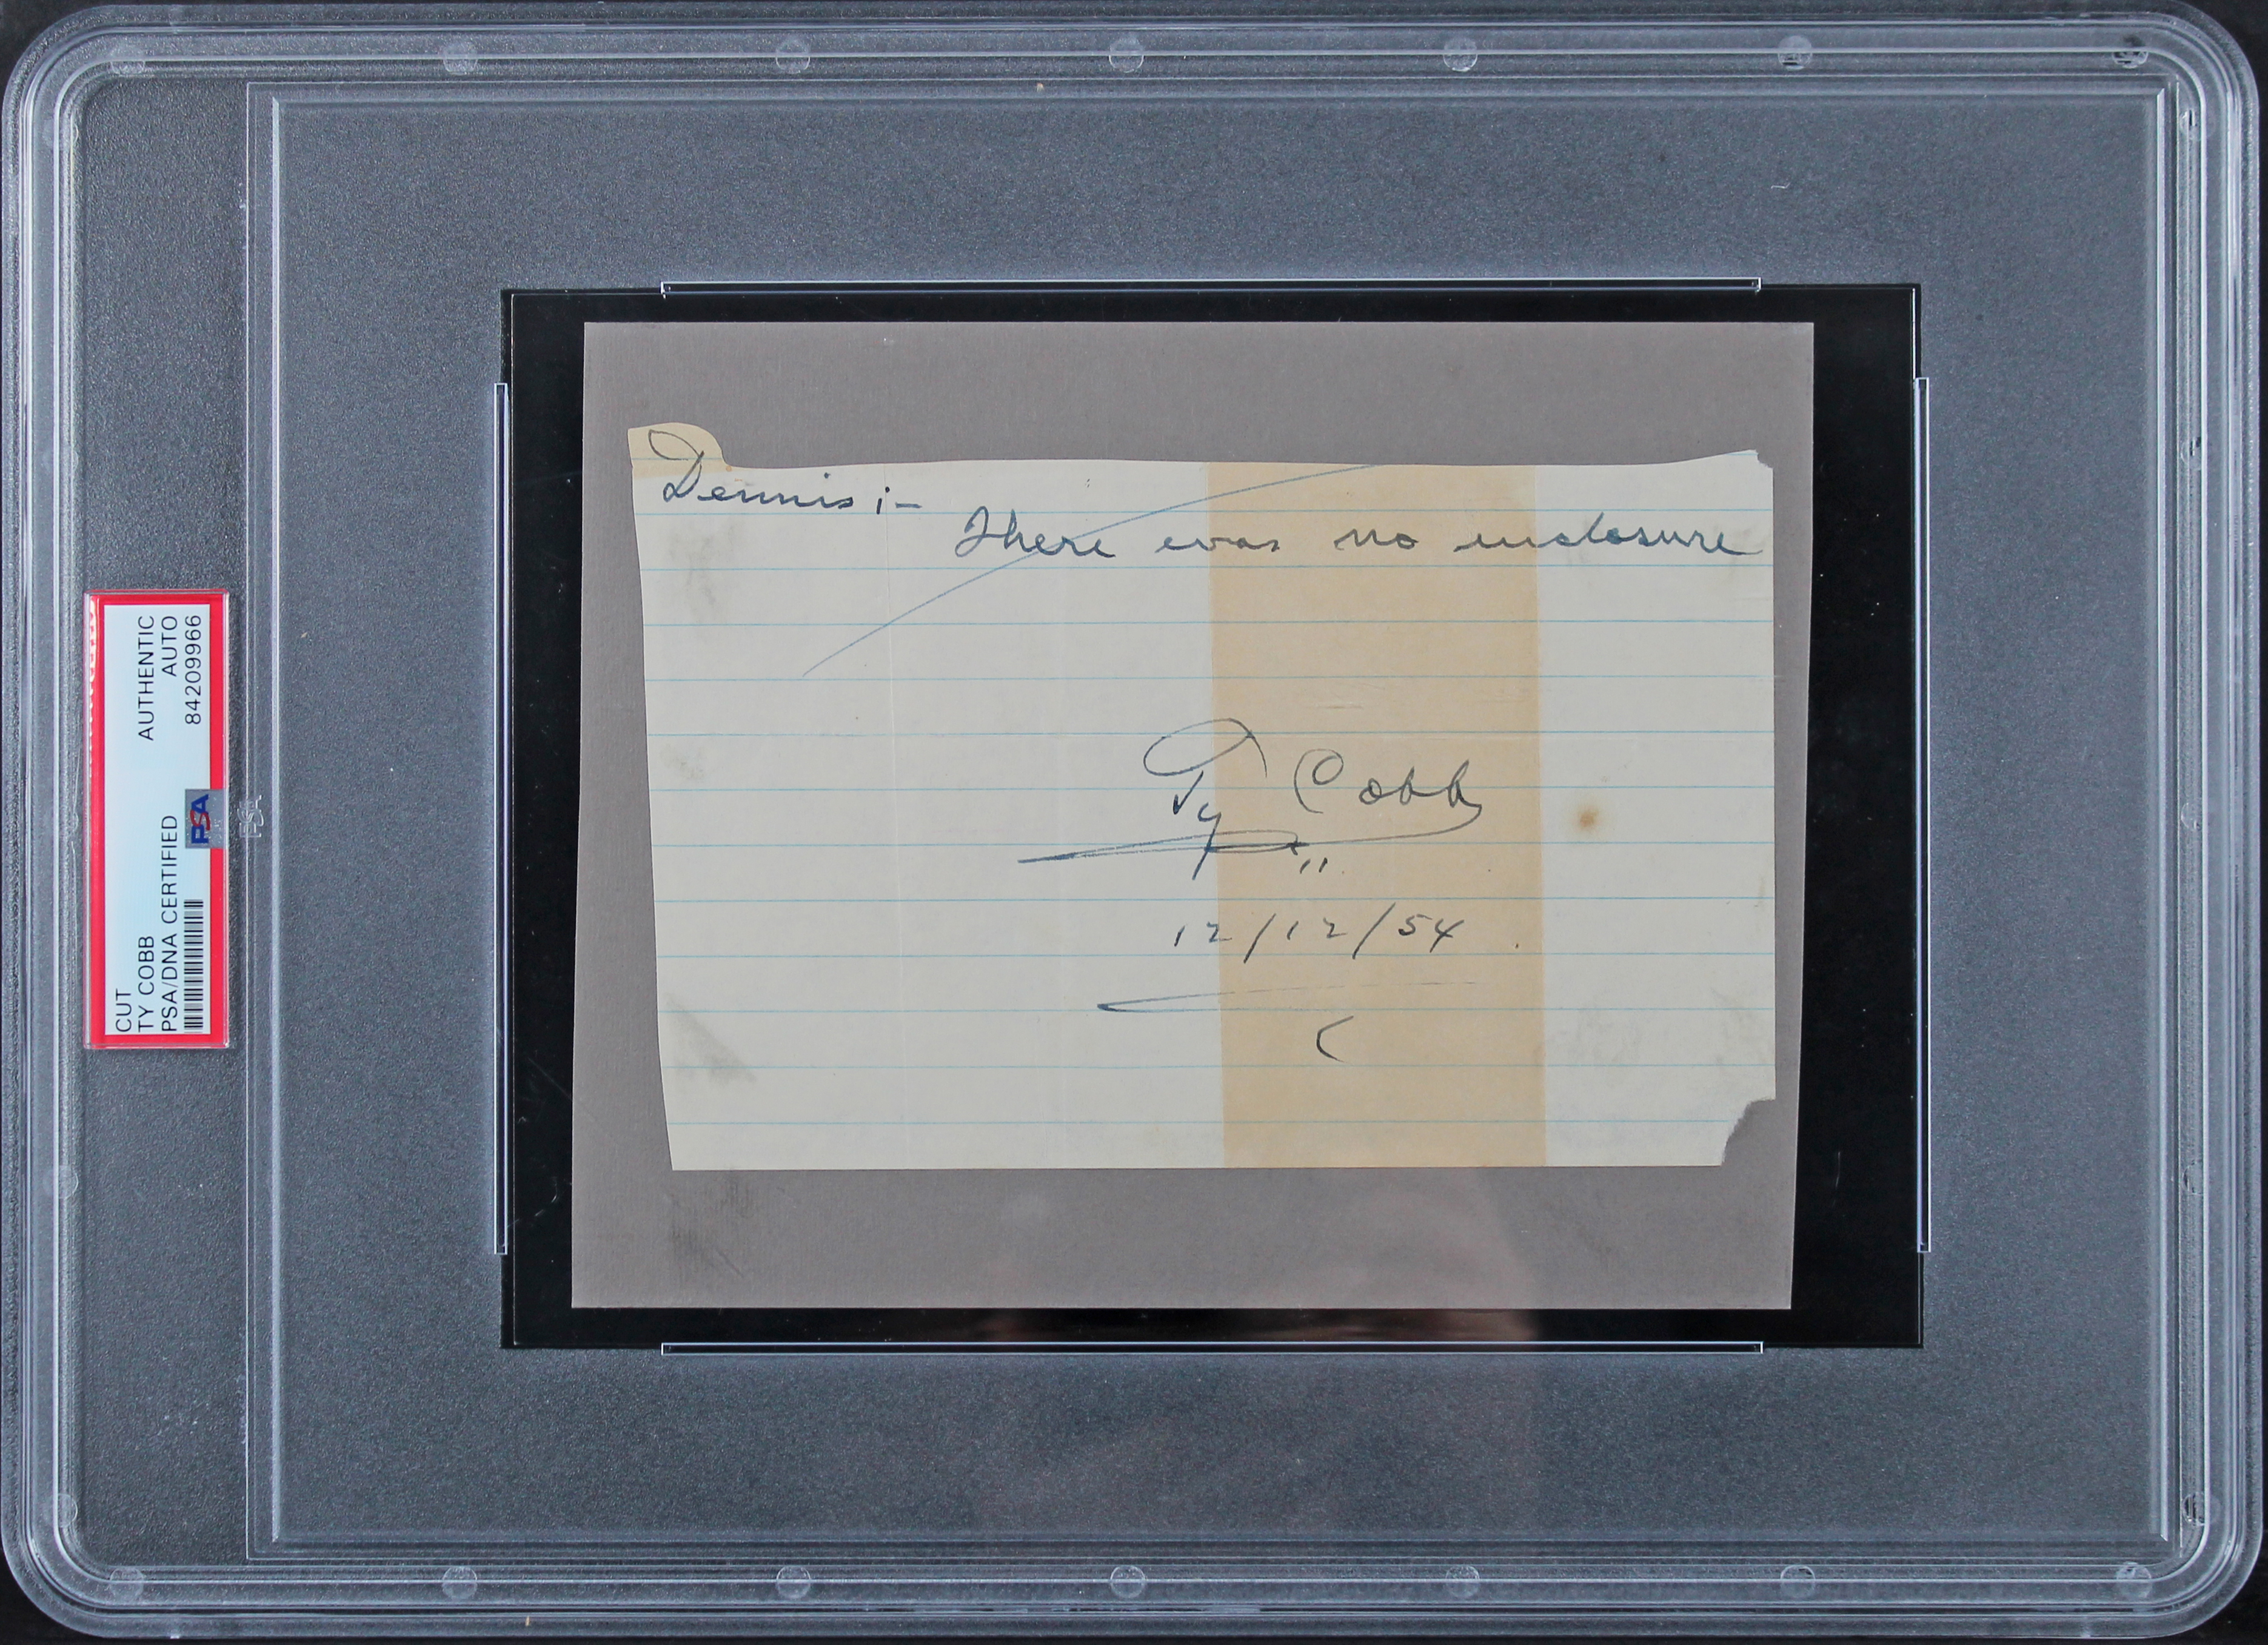 CUT
TY COBB
PSA/DNA CERTIFIED
AUTHENTIC
AUTO
84209966
PSA
PSA
Dennis :-
There was no enclosure
Ty Cobb
12/12/54